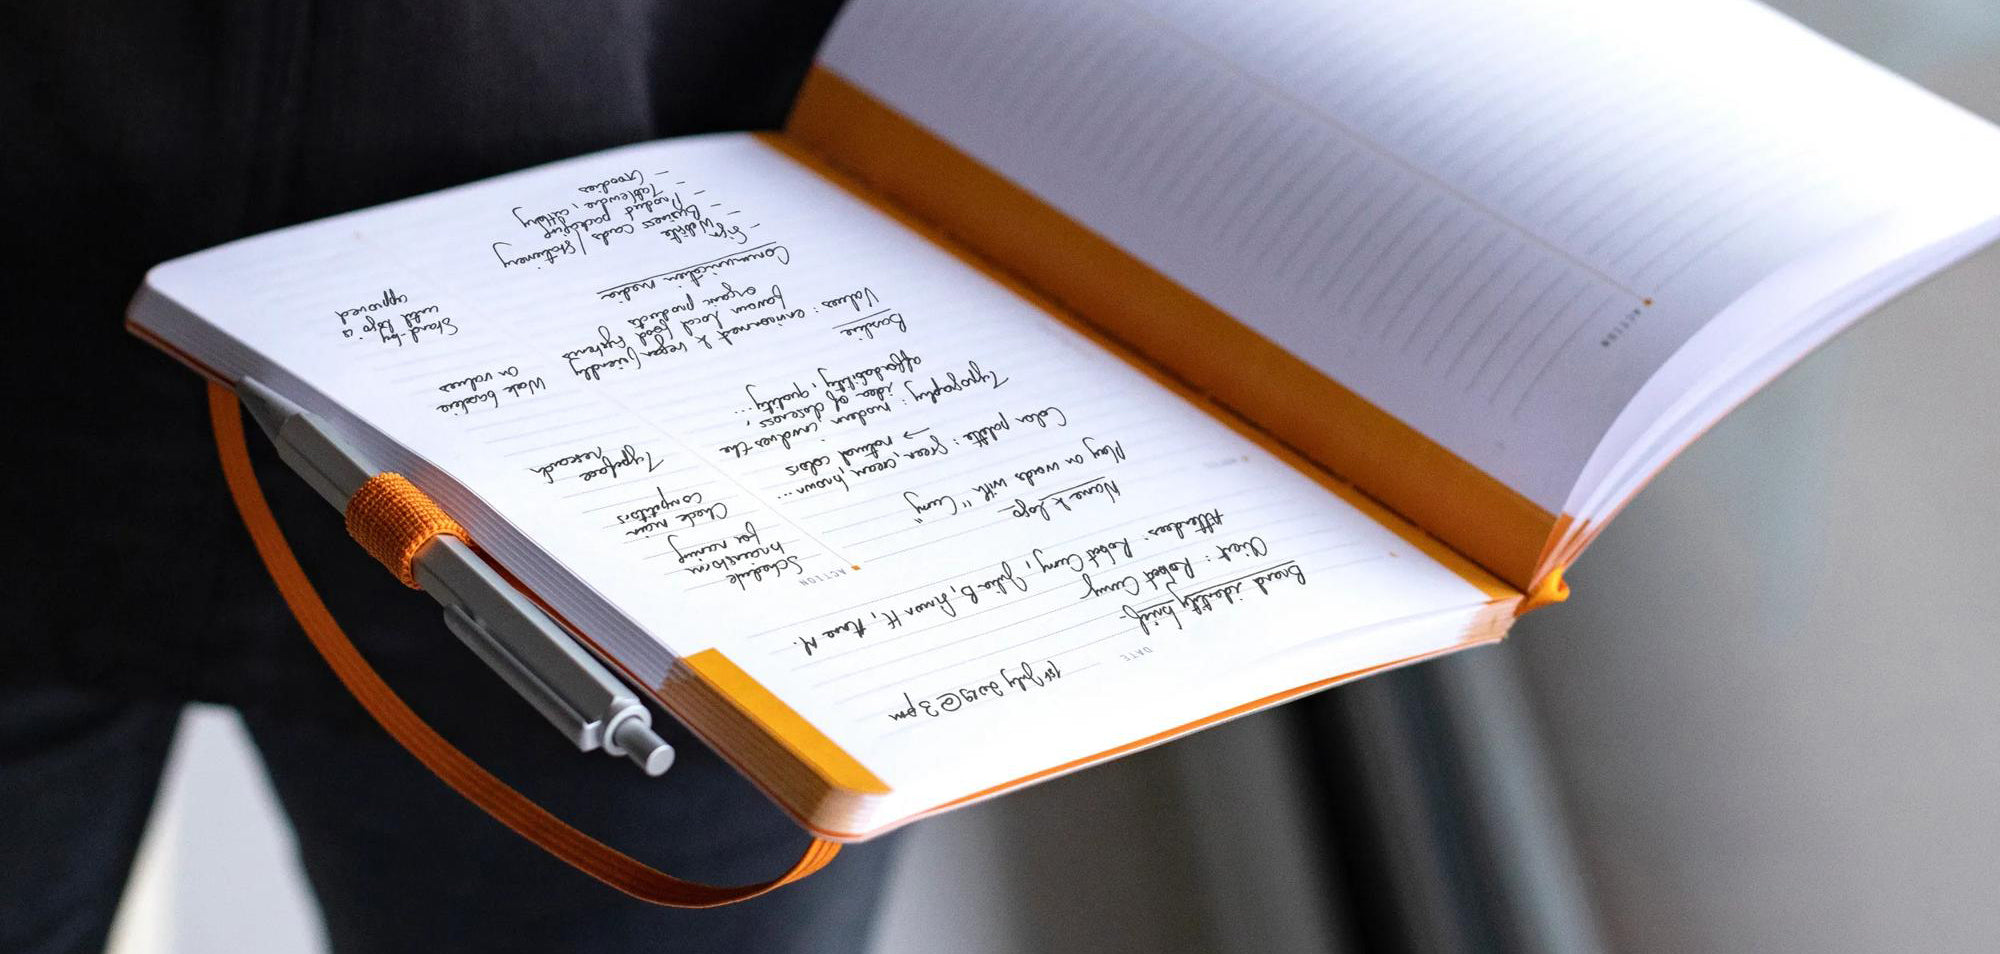 DATE
1st July 2019 @ 3pm
Brand identity brief
Client : Robert Curry
Attendees: Robert Curry, Julia B, Simon H, Anne M.
Name & logo
Play on words with "Curry"
Color palette : green, cream, brown...
→ natural colors
Typography : modern, involves the
idea of closeness,
affordability, quality...
Baseline
Values : environment & vegan friendly
favour local food systems
organic products
Communication media
Website
– Business cards / Stationery
– Product packaging
– Tableware, cutlery
– Goodies
ACTION
Schedule
brainstorm
for naming
Check main
competitors
Typeface
research
Work baseline
on values
Stand-by
until logo is
approved
ACTION